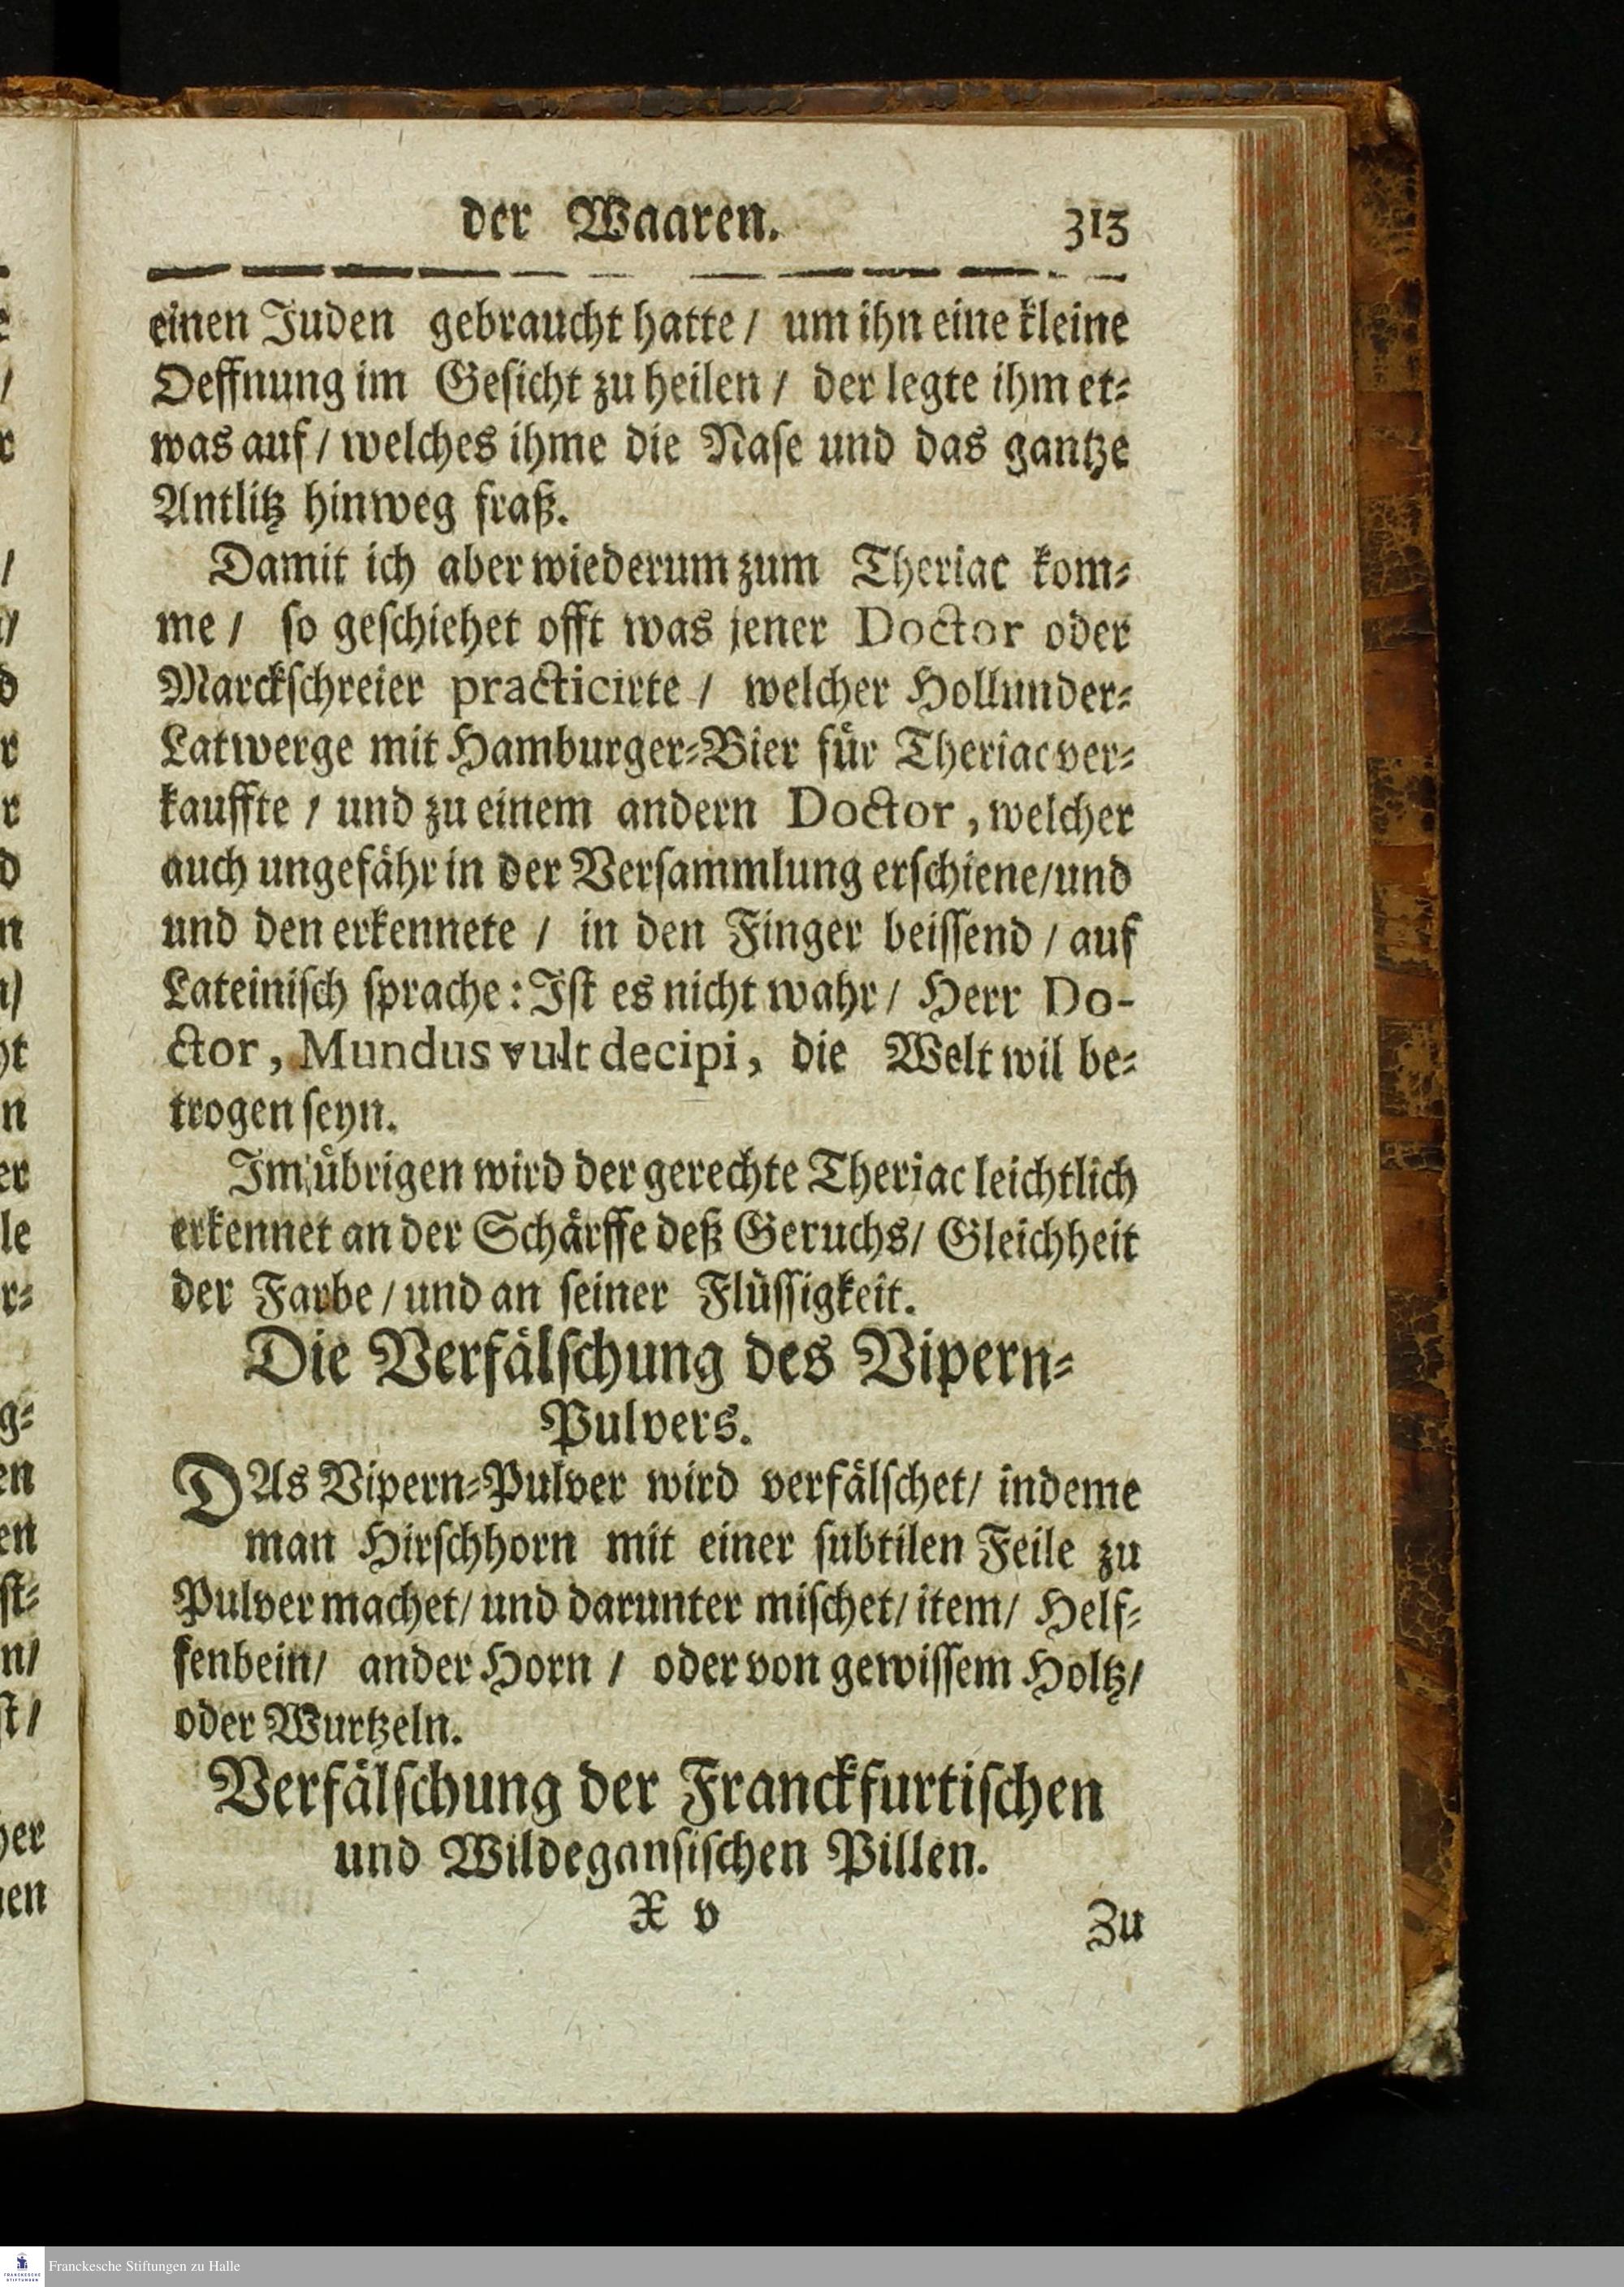 der Waaren. 313
einen Juden gebraucht hatte / um ihn eine kleine
Oeffnung im Geſicht zu heilen / der legte ihm et⸗
was auf / welches ihme die Naſe und das gantze
Antlitz hinweg fraß.
Damit ich aber wiederum zum Theriac kom⸗
me / ſo geſchiehet offt was jener Doctor oder
Marckſchreier practicirte / welcher Hollunder⸗
Latwerge mit Hamburger⸗Bier fuͤr Theriac ver⸗
kauffte / und zu einem andern Doctor, welcher
auch ungefaͤhr in der Verſammlung erſchiene/und
und den erkennete / in den Finger beiſſend / auf
Lateiniſch ſprache: Iſt es nicht wahr / Herr Do-
ctor, Mundus vult decipi, die Welt wil be⸗
trogen ſeyn.
Im uͤbrigen wird der gerechte Theriac leichtlich
erkennet an der Schaͤrffe deß Geruchs/ Gleichheit
der Farbe / und an ſeiner Fluͤſſigkeit.
Die Verfaͤlſchung des Vipern⸗
Pulvers.
DAs Vipern⸗Pulver wird verfaͤlſchet/ indeme
man Hirſchhorn mit einer ſubtilen Feile zu
Pulver machet/ und darunter miſchet/ item/ Helf⸗
fenbein/ ander Horn / oder von gewiſſem Holtz/
oder Wurtzeln.
Verfaͤlſchung der Franckfurtiſchen
und Wildeganſiſchen Pillen.
X v Zu
Franckesche Stiftungen zu Halle